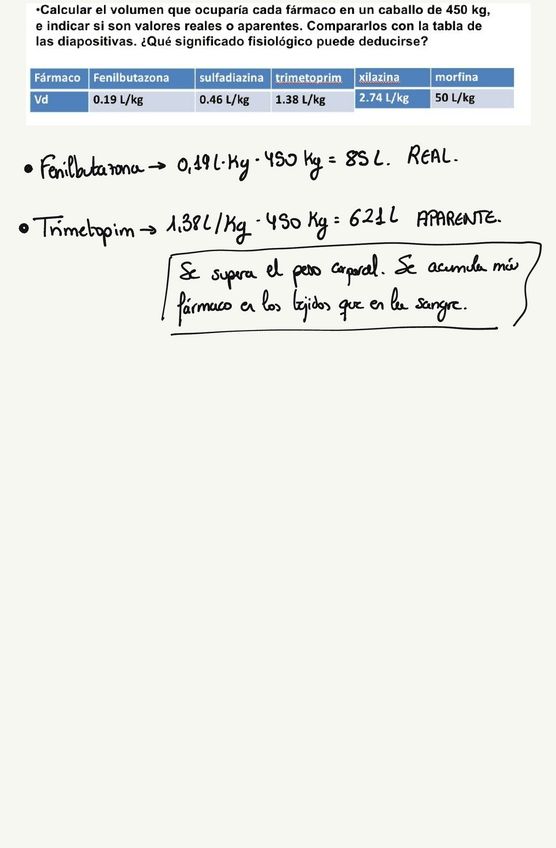 •Calcular el volumen que ocuparía cada fármaco en un caballo de 450 kg,
e indicar si son valores reales o aparentes. Compararlos con la tabla de
las diapositivas. ¿Qué significado fisiológico puede deducirse?
Fármaco Fenilbutazona sulfadiazina trimetoprim xilazina morfina
Vd 0.19 L/kg 0.46 L/kg 1.38 L/kg 2.74 L/kg 50 L/kg
• Fenilbutazona → 0,19 L·Kg · 450 Kg = 85 L. REAL.
• Trimetopim → 1,38 L/Kg · 450 Kg = 621 L APARENTE.
Se supera el peso corporal. Se acumula más
fármaco en los tejidos que en la sangre.